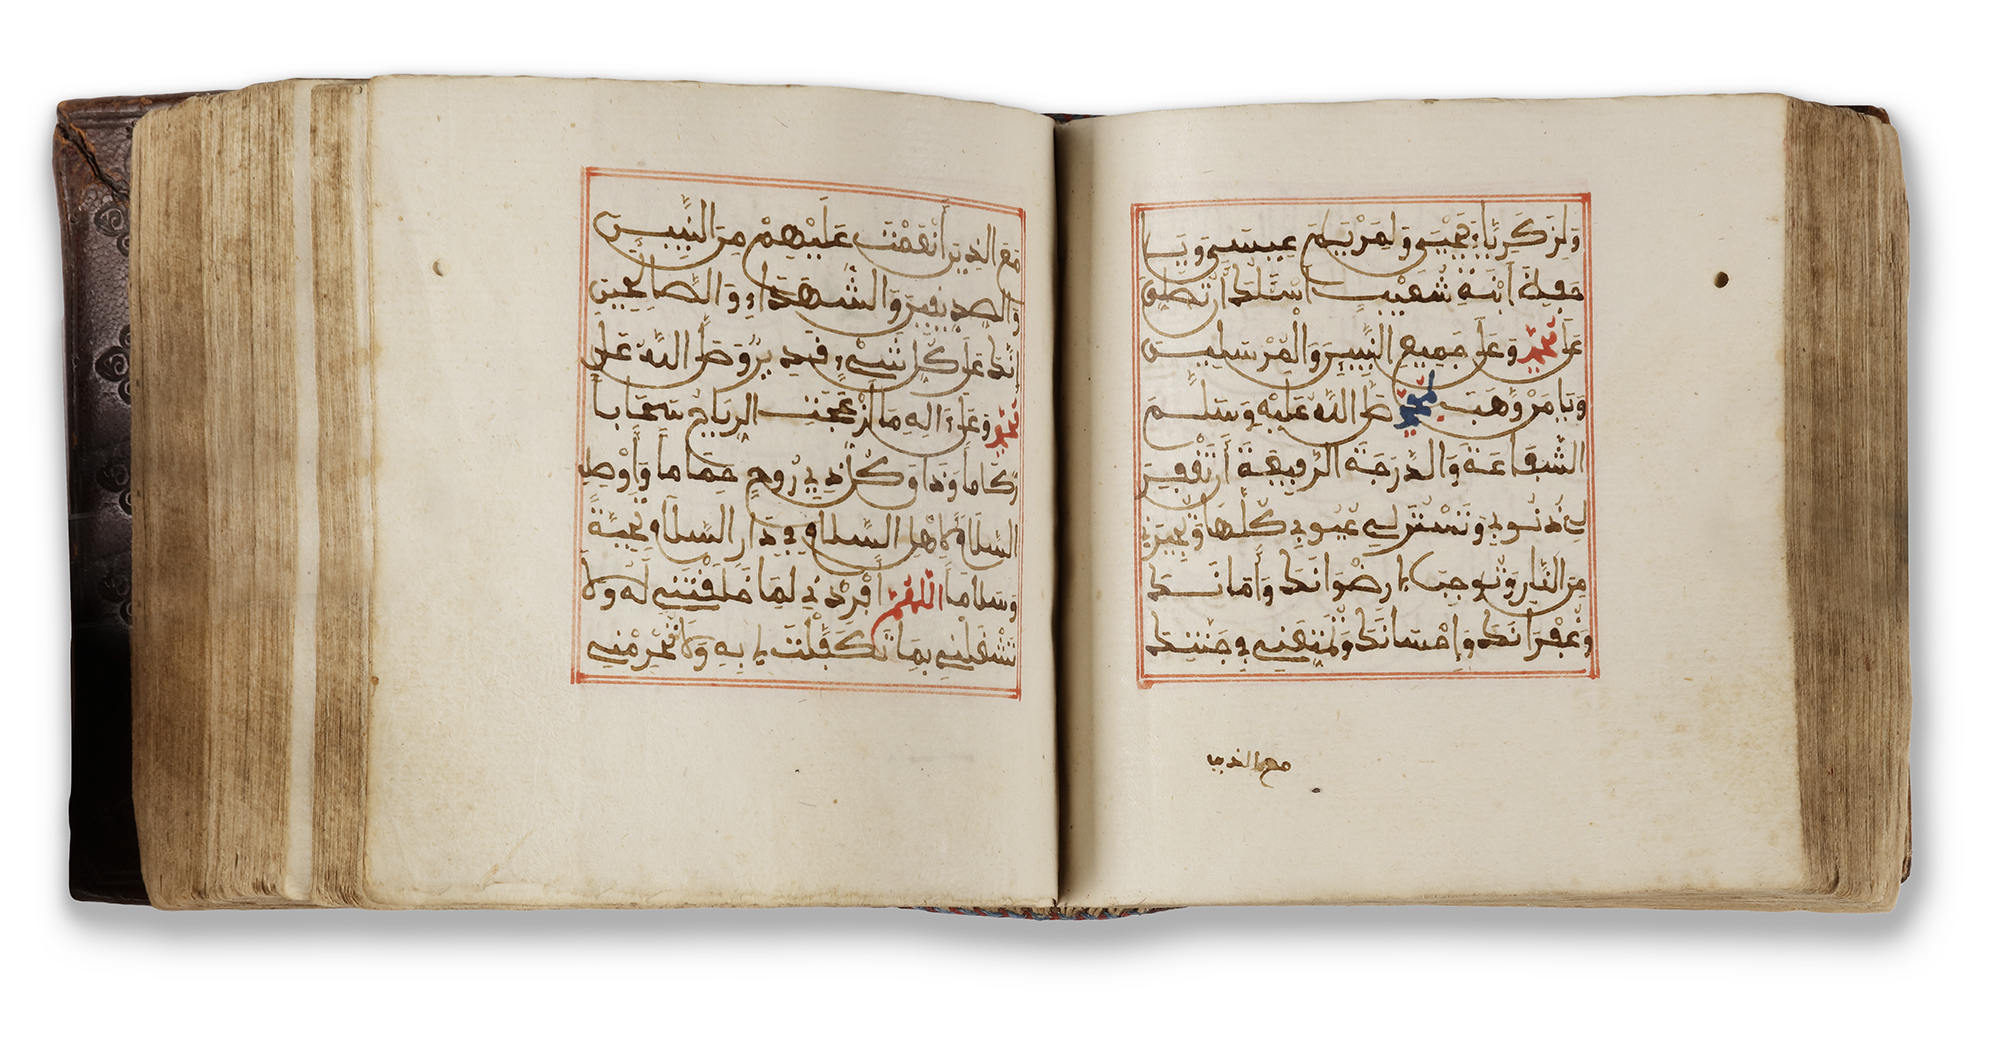 وَلِزَكَرِيَّاءَ يَحْيَى وَلِمَرْيَمَ عِيسَى وَيَا
حَافِظَ ابْنَةِ شُعَيْبٍ أَسْـَٔلُكَ أَنْ تُصَلِّيَ
عَلَى مُحَمَّدٍ وَعَلَى جَمِيعِ النَّبِيِّينَ وَالْمُرْسَلِينَ
وَيَا مَنْ وَهَبَ لِمُحَمَّدٍ صَلَّى اللَّهُ عَلَيْهِ وَسَلَّمَ
الشَّفَاعَةَ وَالدَّرَجَةَ الرَّفِيعَةَ أَنْ تَغْفِرَ
لِي ذُنُوبِي وَتَسْتُرَ لِي عُيُوبِي كُلَّهَا وَتُجِيرَنِي
مِنَ النَّارِ وَتُوجِبَ لِي رِضْوَانَكَ وَأَمَانَكَ
وَغُفْرَانَكَ وَإِحْسَانَكَ وَتُمَتِّعَنِي فِي جَنَّتِكَ
مع الذين
مَعَ الَّذِينَ أَنْعَمْتَ عَلَيْهِمْ مِنَ النَّبِيِّينَ
وَالصِّدِّيقِينَ وَالشُّهَدَاءِ وَالصَّالِحِينَ
إِنَّكَ عَلَى كُلِّ شَيْءٍ قَدِيرٌ وَصَلَّى اللَّهُ عَلَى
مُحَمَّدٍ وَعَلَى ءَالِهِ مَا أَزْعَجَتِ الرِّيَاحُ سَحَابًا
رُكَامًا وَذَاقَ كُلُّ ذِي رُوحٍ حِمَامًا وَأَوْصِلِ
السَّلَامَ لِأَهْلِ السَّلَامِ فِي دَارِ السَّلَامِ تَحِيَّةً
وَسَلَامًا اللَّهُمَّ أَفْرِدْنِي لِمَا خَلَقْتَنِي لَهُ وَلَا
تَشْغَلْنِي بِمَا تَكَفَّلْتَ لِي بِهِ وَلَا تَحْرِمْنِي